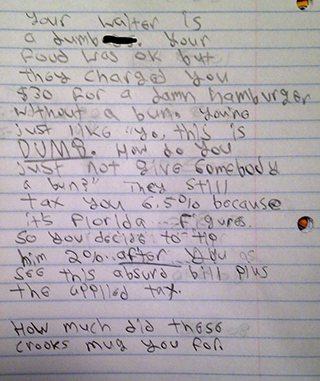 Your waiter is
a dumb Your
food was ok but
they charged you
$30 for a damn hamburger
without a bun. You're
just like "Yo, this is
DUMB. How do you
just not give somebody
a bun?" They still
tax you 6.5% because
it's Florida. Figures.
So you decide to tip
him 20% after you
see this absurd bill plus
the applied tax.
How much did these
crooks mug you for.